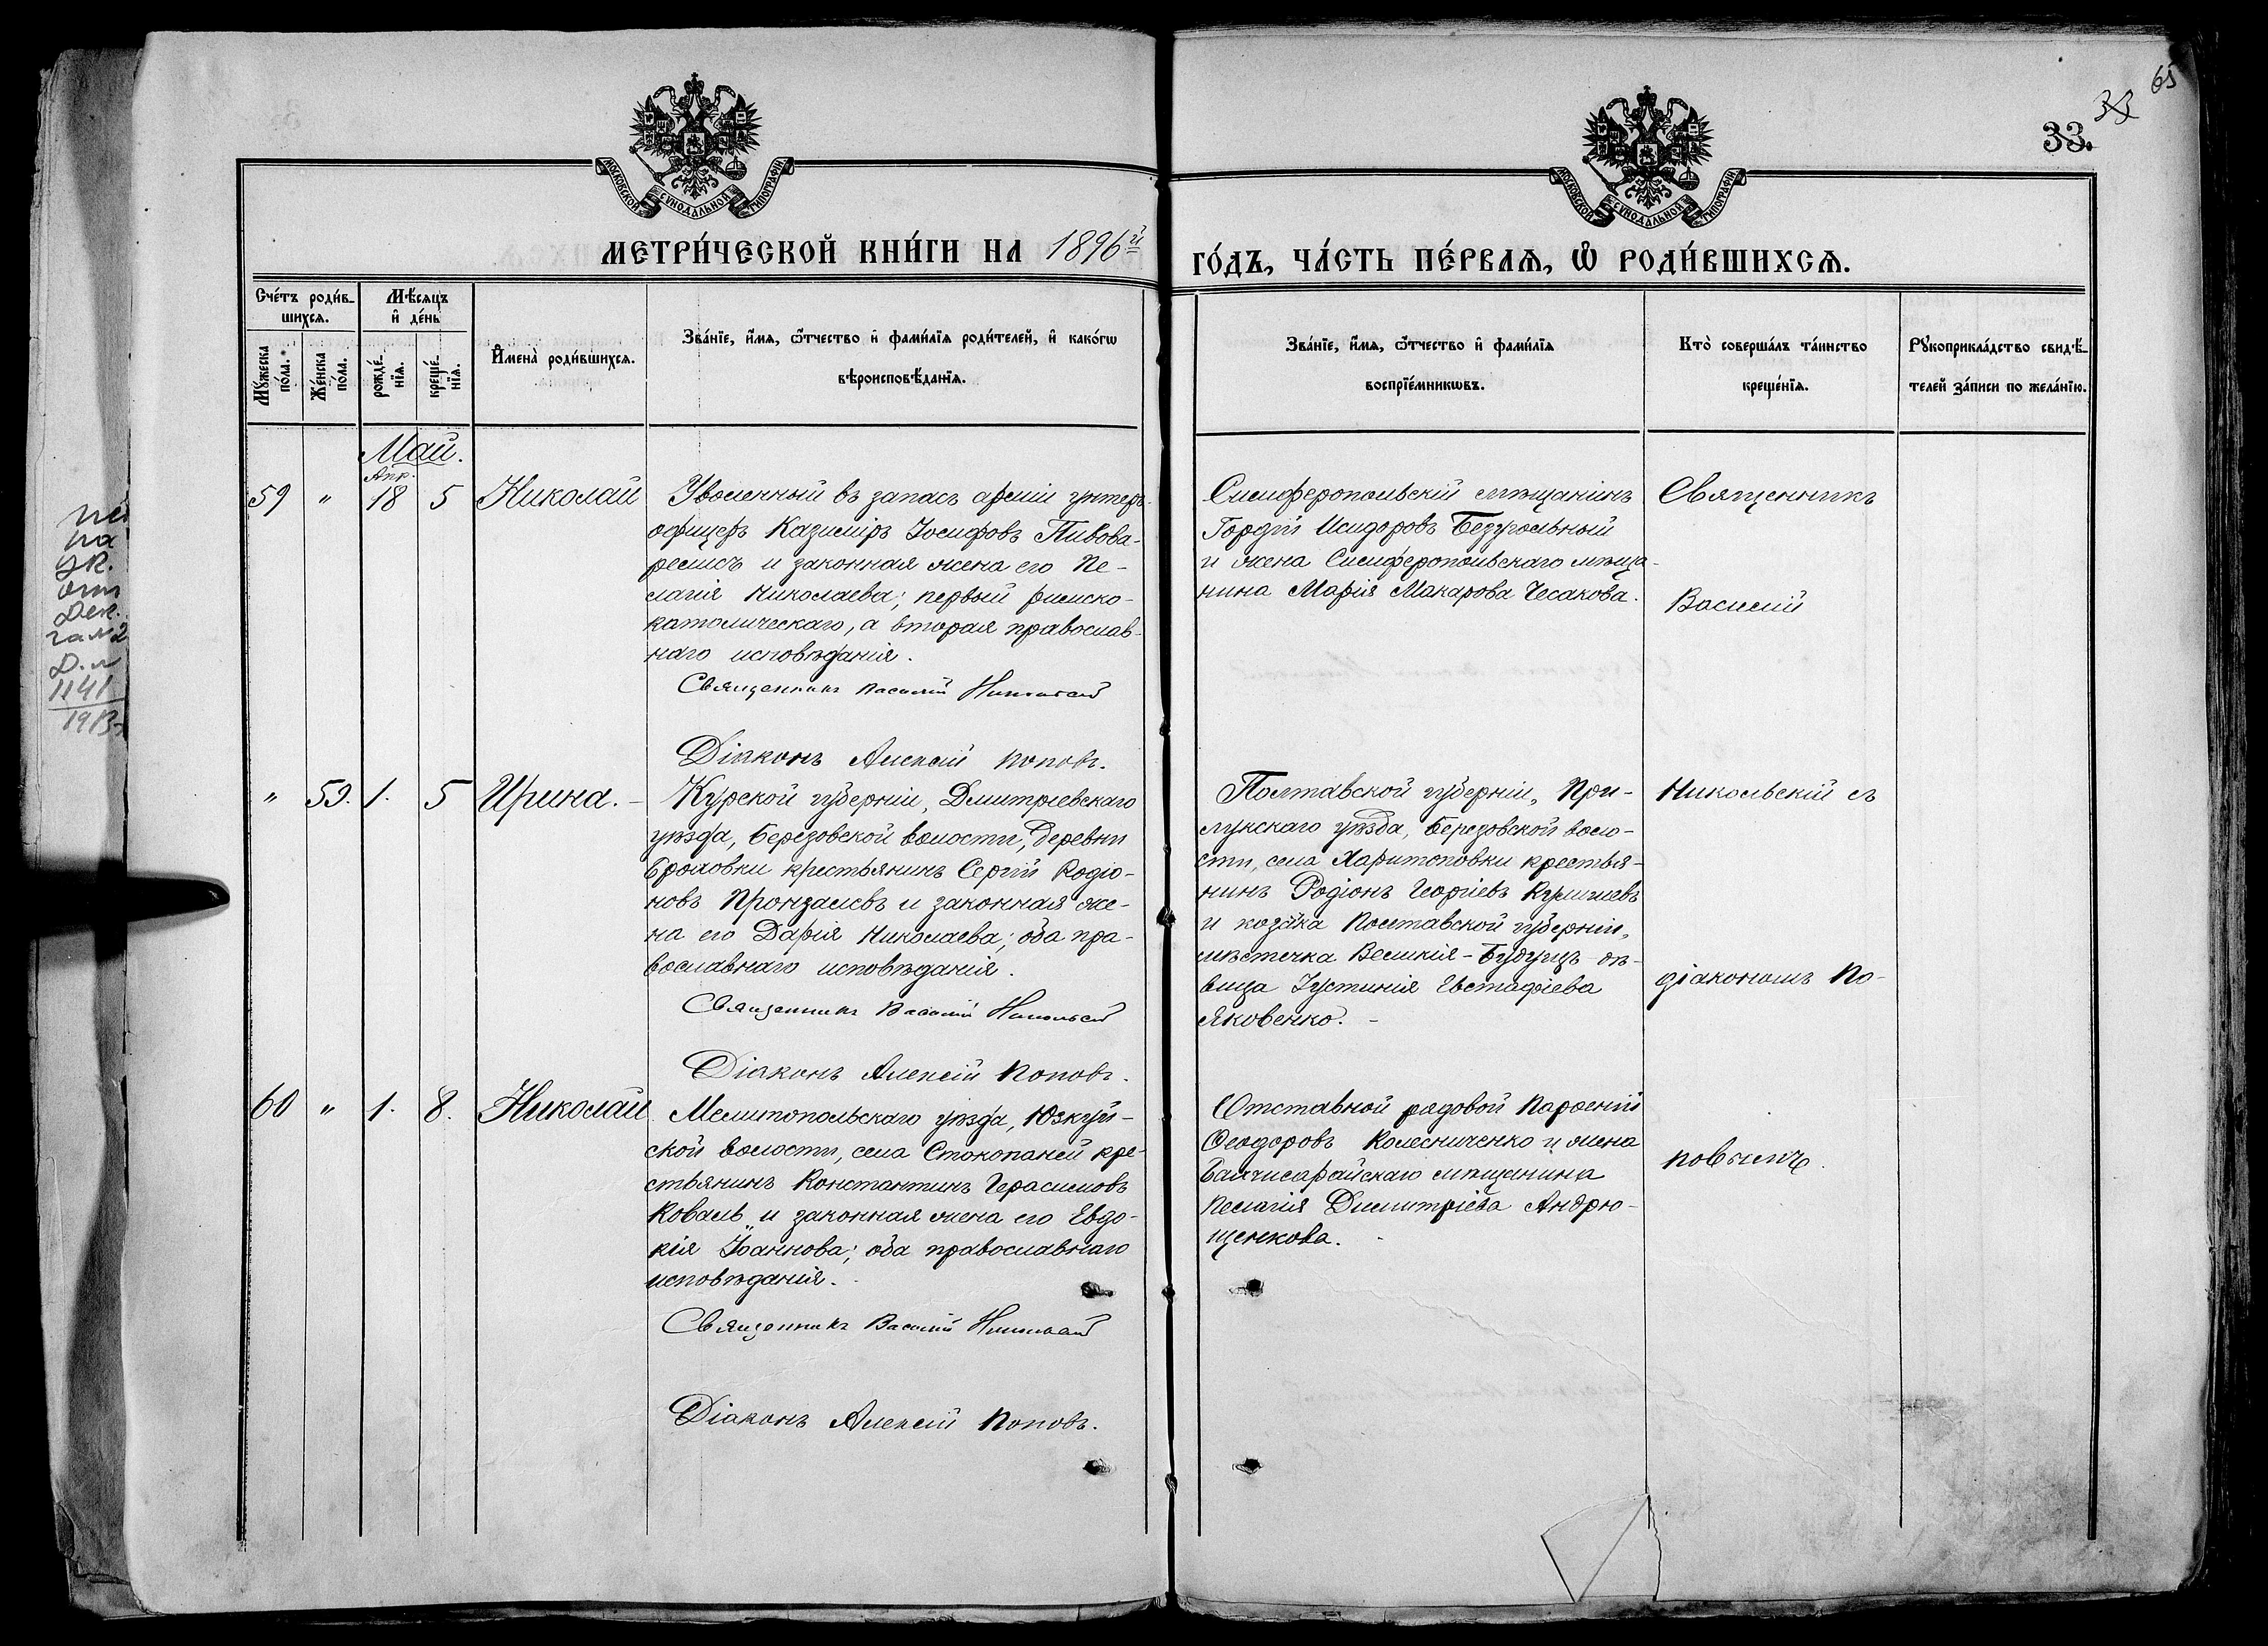 65
33
33.
МОСКОВСКОЙ СУНОДАЛЬНОЙ ТИПОГРАФІИ
МОСКОВСКОЙ СУНОДАЛЬНОЙ ТИПОГРАФІИ
МЕТРИ́ЧЕСКОЙ КНИ́ГИ НА 1896й
ГО́ДЪ, ЧА́СТЬ ПЕ́РВАѦ, Ѽ РОДИ́ВШИХСѦ.
Сче́тъ роди́в-
шихсѧ.
Мѣ́сѧцъ
и҆ де́нь
Мꙋ́жеска
по́ла.
Же́нска
по́ла.
рожде́-
нїѧ.
креще́-
нїѧ.
И҆мена̀ роди́вшихсѧ.
Зва́нїе, и҆́мѧ, ѻ҆́тчество и҆ фами́лїѧ роди́телей, и҆ како́гѡ
вѣроисповѣ́данїѧ.
Зва́нїе, и҆́мѧ, ѻ҆́тчество и҆ фами́лїѧ
воспрїе́мникѡвъ.
Кто̀ соверша́лъ та́инство
креще́нїѧ.
Рꙋкоприкла́дство свидѣ́-
телей за́писи по жела́нїю.
Май.
Апр.
59 " 18 5 Николай
Уволенный въ запасъ арміи унтеръ-
офицеръ Казиміръ Іосифовъ Пивова-
ремисъ и законная жена его Пе-
лагія Николаева; первый римско-
католическаго, а вторая православ-
наго исповѣданія.
Священникъ Василій Никольскій
Діаконъ Алексій Поповъ.
Симферопольскій мѣщанинъ
Гордій Исидоровъ Безугольный
и жена Симферопольскаго мѣща-
нина Марія Макарова Чесакова.
Священникъ
Василій
" 59. 1. 5 Ирина.
Курской губерніи, Дмитріевскаго
уѣзда, Березовской волости, деревни
крестьянинъ Сергій Родіо-
новъ и законная же-
на его Дарія Николаева; оба пра-
вославнаго исповѣданія.
Священникъ Василій Никольскій
Діаконъ Алексій Поповъ.
Полтавской губерніи, При-
лукскаго уѣзда, Березовской воло-
сти, села Харитоновки крестья-
нинъ Родіонъ Георгіевъ
и козачка Полтавской губерніи,
мѣстечка Великія-Будищъ дѣ-
вица Іустинія Евстафіева
Яковенко.
Никольскій съ
діакономъ По-
60 " 1. 8. Николай
Мелитопольскаго уѣзда, Юзкуй-
ской волости, села Стокопаней кре-
стьянинъ Константинъ Герасимовъ
Коваль и законная жена его Евдо-
кія Іоаннова; оба православнаго
исповѣданія.
Священникъ Василій Никольскій
Діаконъ Алексій Поповъ.
Отставной рядовой Парѳеній
Ѳеодоровъ Колесниченко и жена
Бахчисарайскаго мѣщанина
Пелагія Димитріева Андрю-
щенкова.
повымъ.
1141
1913